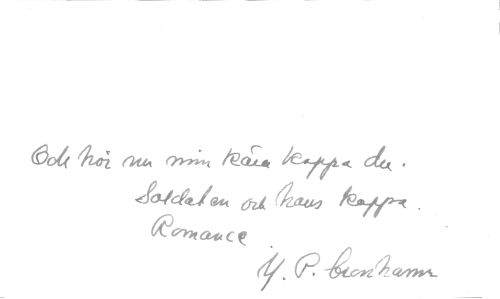 Och hör nu min kära kappa du.
Soldaten och hans kappa.
Romance
Y. P. Cronhamn